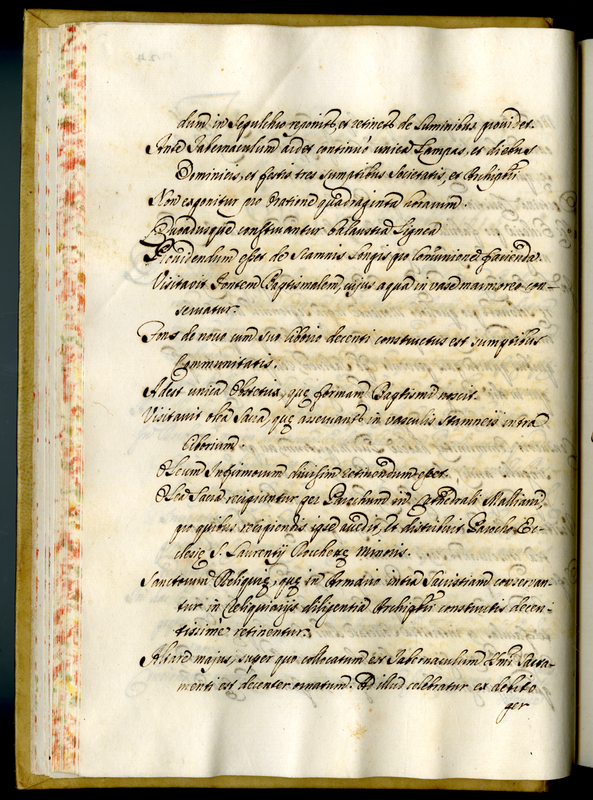 dum in Sepulchro reponit, et retinet, de Luminibus providet.
Ante Tabernaculum ardet continuò unica Lampas, et diebus
Dominicis, et festis tres sumptibus Societatis, et Archiptri
Non exponitur pro Oratione quadraginta horarum.
Quousque construantur balaustra Lignea
Providendum esset de Scamnis Longis pro Comunione facienda.
Visitavit Fontem Baptismalem, cujus aqua in vase marmoreo con-
servatur.
Fons de novo cum suo Ciborio decenti constructus est sumptibus
Communitatis.
Adest unica Obstetrix, quę formam Baptismi noscit.
Visitavit olea Sacra, quę asservantur in vasculis stamneis intra
Ciborium.
Oleum Infirmorum divisim retinendum esset.
Olea Sacra recipiuntur per Parochum in Cathedrali
pro quibus recipiendis ipse accedit, et distribuit Parocho Ec-
clesię S. Laurentij Rocchettę minoris.
Sanctorum Reliquię, quę in Armario intra Sacristiam conservan-
tur in Reliquiarijs diligentia Archiptri constructis decen-
tissimè retinentur.
Altare majus, super quo collocatum est Tabernaculum Smi Sacra-
menti est decenter ornatum. Ad illud celebratur ex debito
per